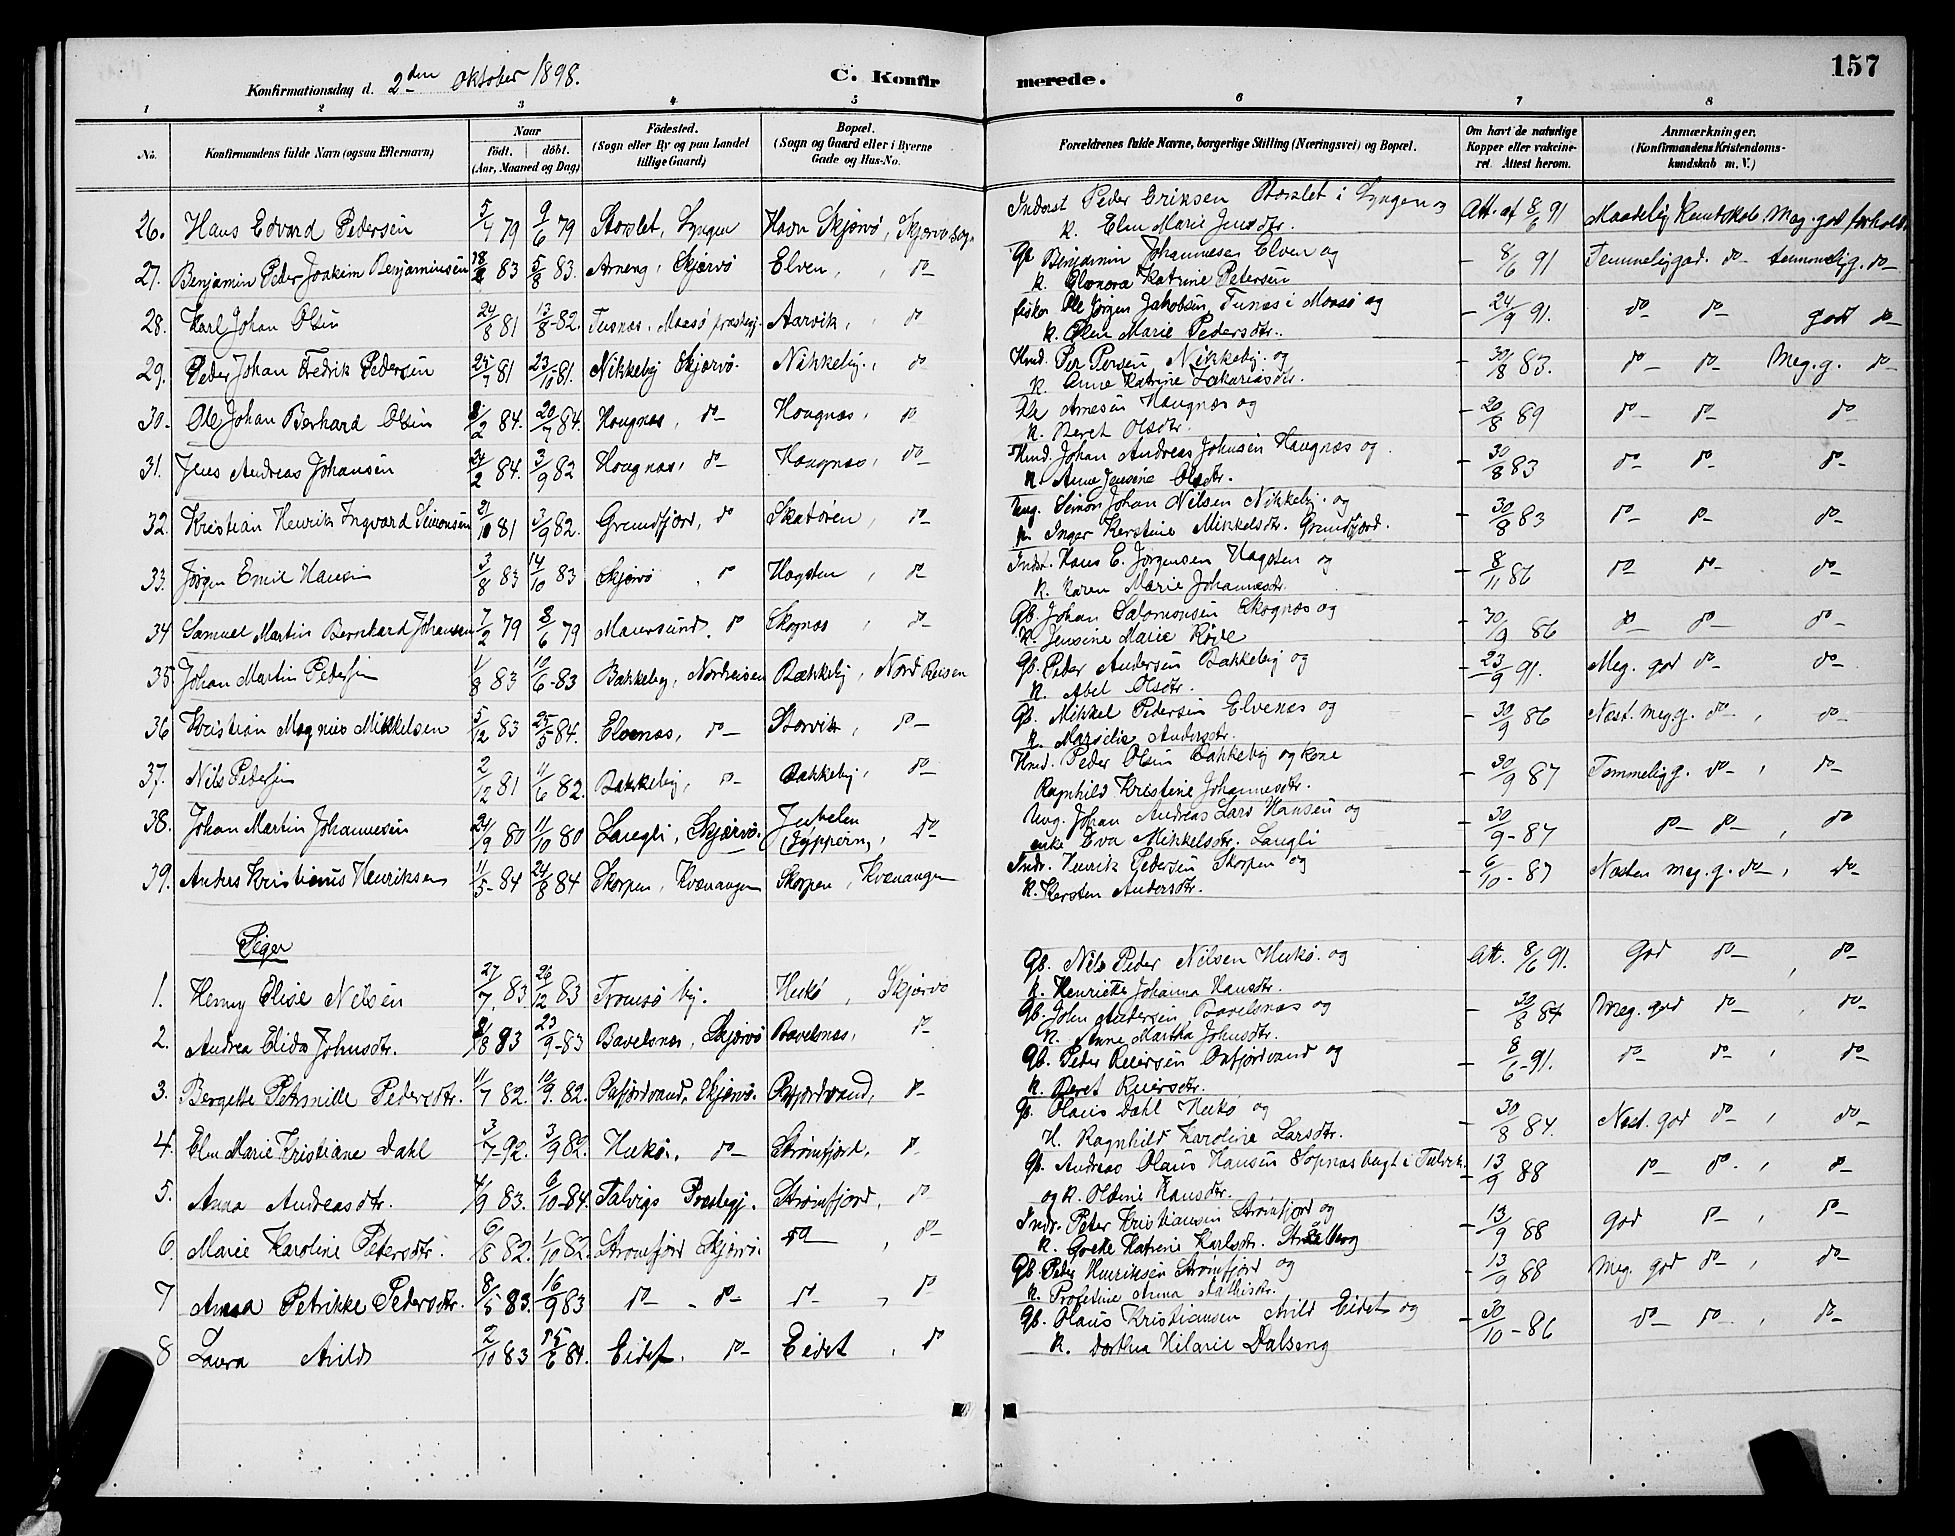 157
Konfirmationsdag d. 2den Oktober 1898. C. Konfirmerede.
1 2 3 4 5 6 7 8
No. Konfirmandens fulde Navn (ogsaa Efternavn) Naar født, døbt. (Aar, Maaned og Dag) Fødested. (Sogn eller By og paa Landet tillige Gaard) Bopæl. (Sogn og Gaard eller i Byerne Gade og Hus-No. Forældrenes fulde Navne, borgerlige Stilling (Næringsvei) og Bopæl. Om havt de naturlige Kopper eller vakcineret. Attest herom. Anmærkninger. (Konfirmandens Kristendomskundskab m. V.)
26. Hans Edvard Pedersen 5/4 79 9/6 79 Storslet, Lyngen Havn Skjervø, Skjervø Sogn Inderst Peder Eriksen Storslet i Lyngen og Att. af 8/6 91 Maadelig Kundskab Meg. god forhold.
K. Elen Marie Jensdtr.
27. Benjamin Peter Joakim Benjaminsen 83 5/8 83. Arneng, Skjervø Elven, do Gb Benjamin Johannesen Elven og 8/6 91 Temmelig god do temmelig g. do
K. Elenora Katrine Petersen
28. Karl Johan Olsen 24/8 81 13/8-82. Tufnæs, Maasø præstegj. Aarvik, do fisker Ole Jørgen Jakobsen Tunæs i Maasø og 24/9 91. do do god do
K. Elen Marie Pedersdtr.
29. Peder Johan Fredrik Pedersen 25/7 81 23/10 81. Nikkeby Skjervø. Nikkeby, do Hmd. Per Persen Nikkeby og 30/8 83. do do Meg. g. do
K. Anne Katrine Zakariasdtr.
30. Ole Johan Berhard Olsen 8/2 84. 20/7 84. Haugnæs, do Haugnæs, do Ole Arnesen Haugnæs og 20/8 89 do do do
K. Beret Olsdtr.
31. Jens Andreas Johansen 24/2 84. 3/9 82 Hougnæs, do Haugnæs, do Hmd. Johan Andreas Johnsen Haugnæs og 30/8 83 do do do
K. Anne Jensine Olsdtr.
32. Kristian Henrik Ingvard Simonsen 21/10 81 3/9 82. Grundfjord, do Skatøren, do Ung. Simon Johan Nilsen Nikkeby og 30/8 83 do do do
p. Inger Kerstine Mikkelsdtr. Grundfjord.
33. Jørgen Emil Hansen 3/8 83 14/10 83 Skjervø, do Hagsten, do Indst. Hans E. Jørgensen Hagsten og 8/11 86 do do do
K. Karen Marie Johannesdtr.
34 Samuel Martin Bernhard Johansen 7/2 79 8/6 79 Maursund, do Skognæs, do Gb. Johan Salomonsen Skognæs og 30/9 86 do do do
K. Jensine Marie Røde
35 Johan Martin Petersen 1/8 83 10/6-83 Bakkeby, Nordreisen Bækkeby, Nord Reisen Gb. Peter Andersen Bakkeby og 23/9 91. Meg. god do do
K. Abel Olsdtr.
36 Kristian Magnus Mikkelsen 5/12 83 25/5 84. Elvenæs, do Storvik, do Gb. Mikkel Pedersen Elvenæs og 30/9 86 Næst. meg g. do, do
K. Marselie Andersdtr.
37. Nils Petersen 2/12 81 11/6 82. Bakkeby, do Bakkeby, do Hmd. Peder Olsen Bakkeby og Kone 30/9 87 Temmelig g. do, do
Ragnhild Kristine Johannesdtr.
38. Johan Martin Johannesen 24/9 80 11/10 80 Laugli, Skjervø. Jubelen do Ung. Johan Andreas Lars Hansen og 30/9-87 do do, do
enke Eva Mikkelsdtr. Laugli
39. Andres Kristianus Henriksen 11/5-84 24/8 84 Skorpen, Kvænangen Skorpen, Kvænangen Indr. Henrik Pedersen Skorpen og 6/10-87 Næsten meg. g. do, do
K. Kersten Andersdtr.
Piger
1. Henny Elise Nilsen 27/7. 83 26/12 83 Tromsø by. Hukø, Skjervø Gb. Nils Peder Nilsen Hukø og Att. 8/6 91. God do, do
K. Henriette Johanna Hansdtr.
2. Andrea Elida Johnsdtr. 83 23/9-83 Bavelsnæs, Skjervø Bavelsnæs, do Gb. John Andersen Bavelsnæs og 30/8 84 Meg. god do, do
K. Anne Martha Johnsdtr.
3. Bergette Petrnille Pedersdtr. 11/7 82. 10/9. 82. Oxfjordvand, Skjervø. Oxfjordvand, do Gb. Peder Reiersen Oxfjordvand og 8/6-91. do do, do
K. Beret Reiersdtr.
4. Elen Marie Kristiane Dahl 3/7-92. 3/9 82. Hukø, do Strømfjord, do Gb. Olaus Dahl Hukø og 30/8 84. Næst. god do, do
K. Ragnhild Karoline Larsdtr.
5. Anna Andreasdtr. 4/9 83. 6/10-84. Talvigs Præstegj. Strømfjord, do Gb. Andreas Olaus Hansen Sopnæsbugt i Talvik. 13/9 88 do do, do
og K. Oldine Hansdtr.
6. Marie Karoline Petersdtr. 6/8 82. 1/10 82. Strømfjord Skjervø. do, do Indr. Peter Kristiansen Strømfjord og 13/9 88 God do, do
K. Grethe Katrine Karlsdtr.
7 Anna Petrikke Pedersdtr. 8/5 83. 16/9 83 do, do do, do Gb. Peder Henriksen Strømfjord og 13/9 88 Meg. god do, do
K. Profetine Anna Mathisdtr.
8 Laura Arild 2/10 83 15/6 84. Eidet, do Eidet, do Gb. Olaus Kristiansen Arild Eidet og 30/10-86 do do, do
K. Dorthea Hilarie Dalseng